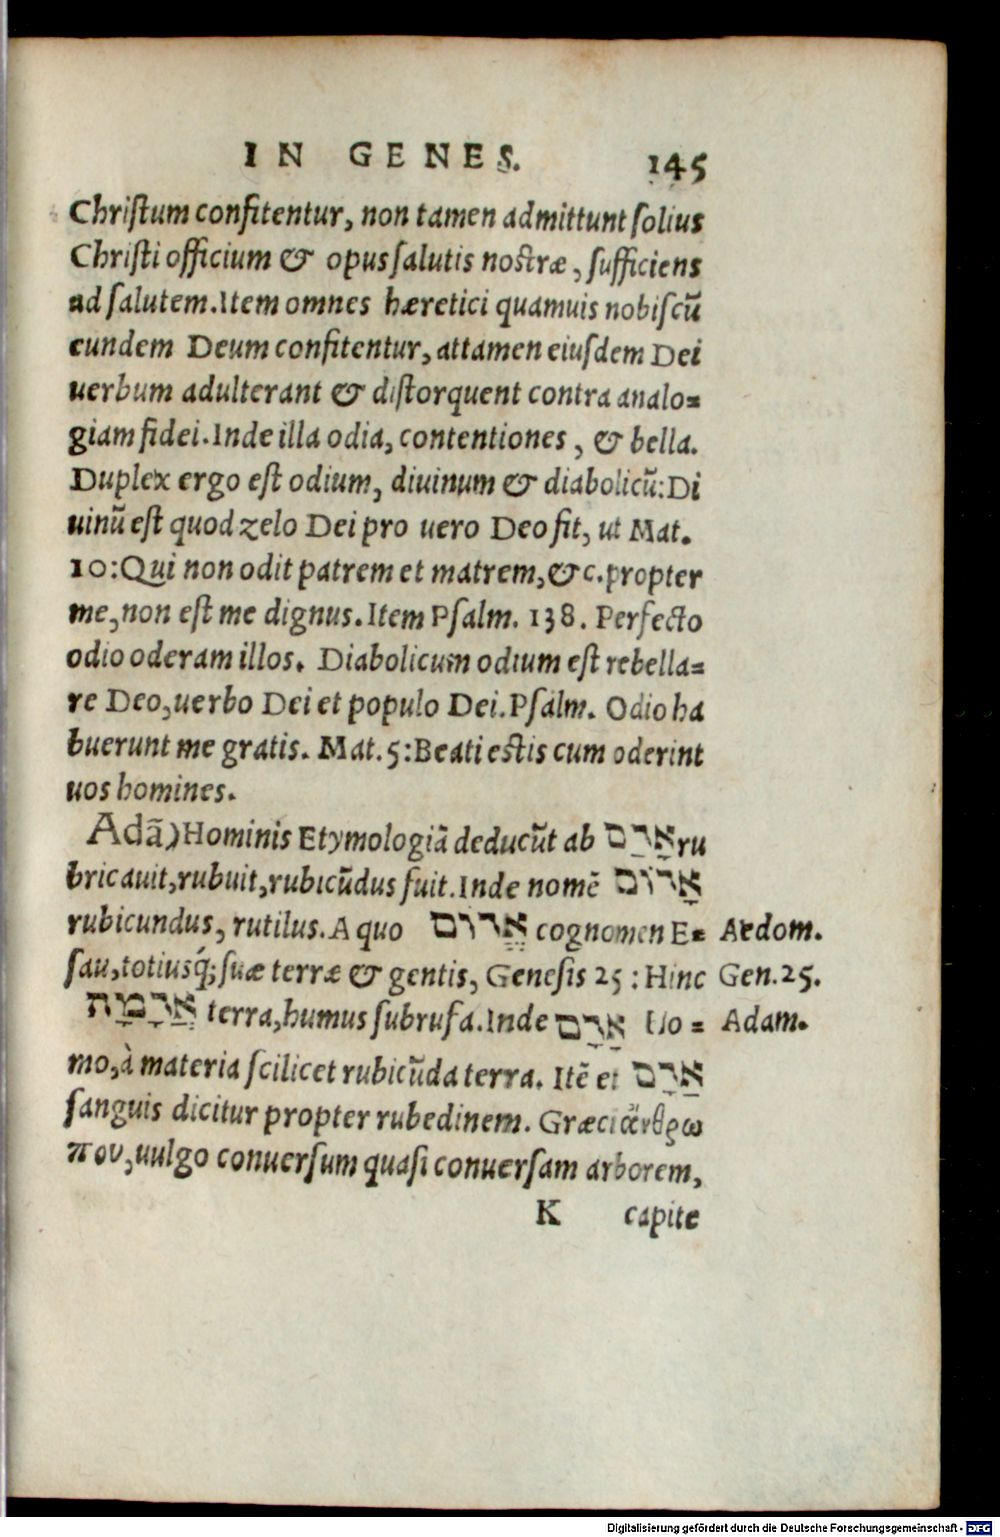 IN GENES. 145
Christum confitentur, non tamen admittunt solius
Christi officium & opus salutis nostræ, sufficiens
ad salutem. Item omnes hæretici quamuis nobiscũ
eundem Deum confitentur, attamen eiusdem Dei
uerbum adulterant & distorquent contra analo=
giam fidei. Inde illa odia, contentiones, & bella.
Duplex ergo est odium, diuinum & diabolicũ: Di
uinũ est quod zelo Dei pro uero Deo fit, ut Mat.
10: Qui non odit patrem et matrem, &c. propter
me, non est me dignus. Item Psalm. 138. Perfecto
odio oderam illos. Diabolicum odium est rebella=
re Deo, uerbo Dei et populo Dei. Psalm. Odio ha
buerunt me gratis. Mat. 5: Beati estis cum oderint
uos homines.
Adã) Hominis Etymologiã deducũt ab אָרַם ru
bricauit, rubuit, rubicũdus fuit. Inde nomē אָרוֹם
rubicundus, rutilus. A quo אֱרוֹם cognomen E= Aedom.
sau, totiusq́; suæ terræ & gentis, Genesis 25: Hinc Gen. 25.
אֲרָמָה terra, humus subrufa. Inde אָרָם Ho= Adam.
mo, à materia scilicet rubicũda terra. Itē et אָרַם
sanguis dicitur propter rubedinem. Græci ἄνθρω
που, uulgo conuersum quasi conuersam arborem,
K capite
Digitalisierung gefördert durch die Deutsche Forschungsgemeinschaft - DFG